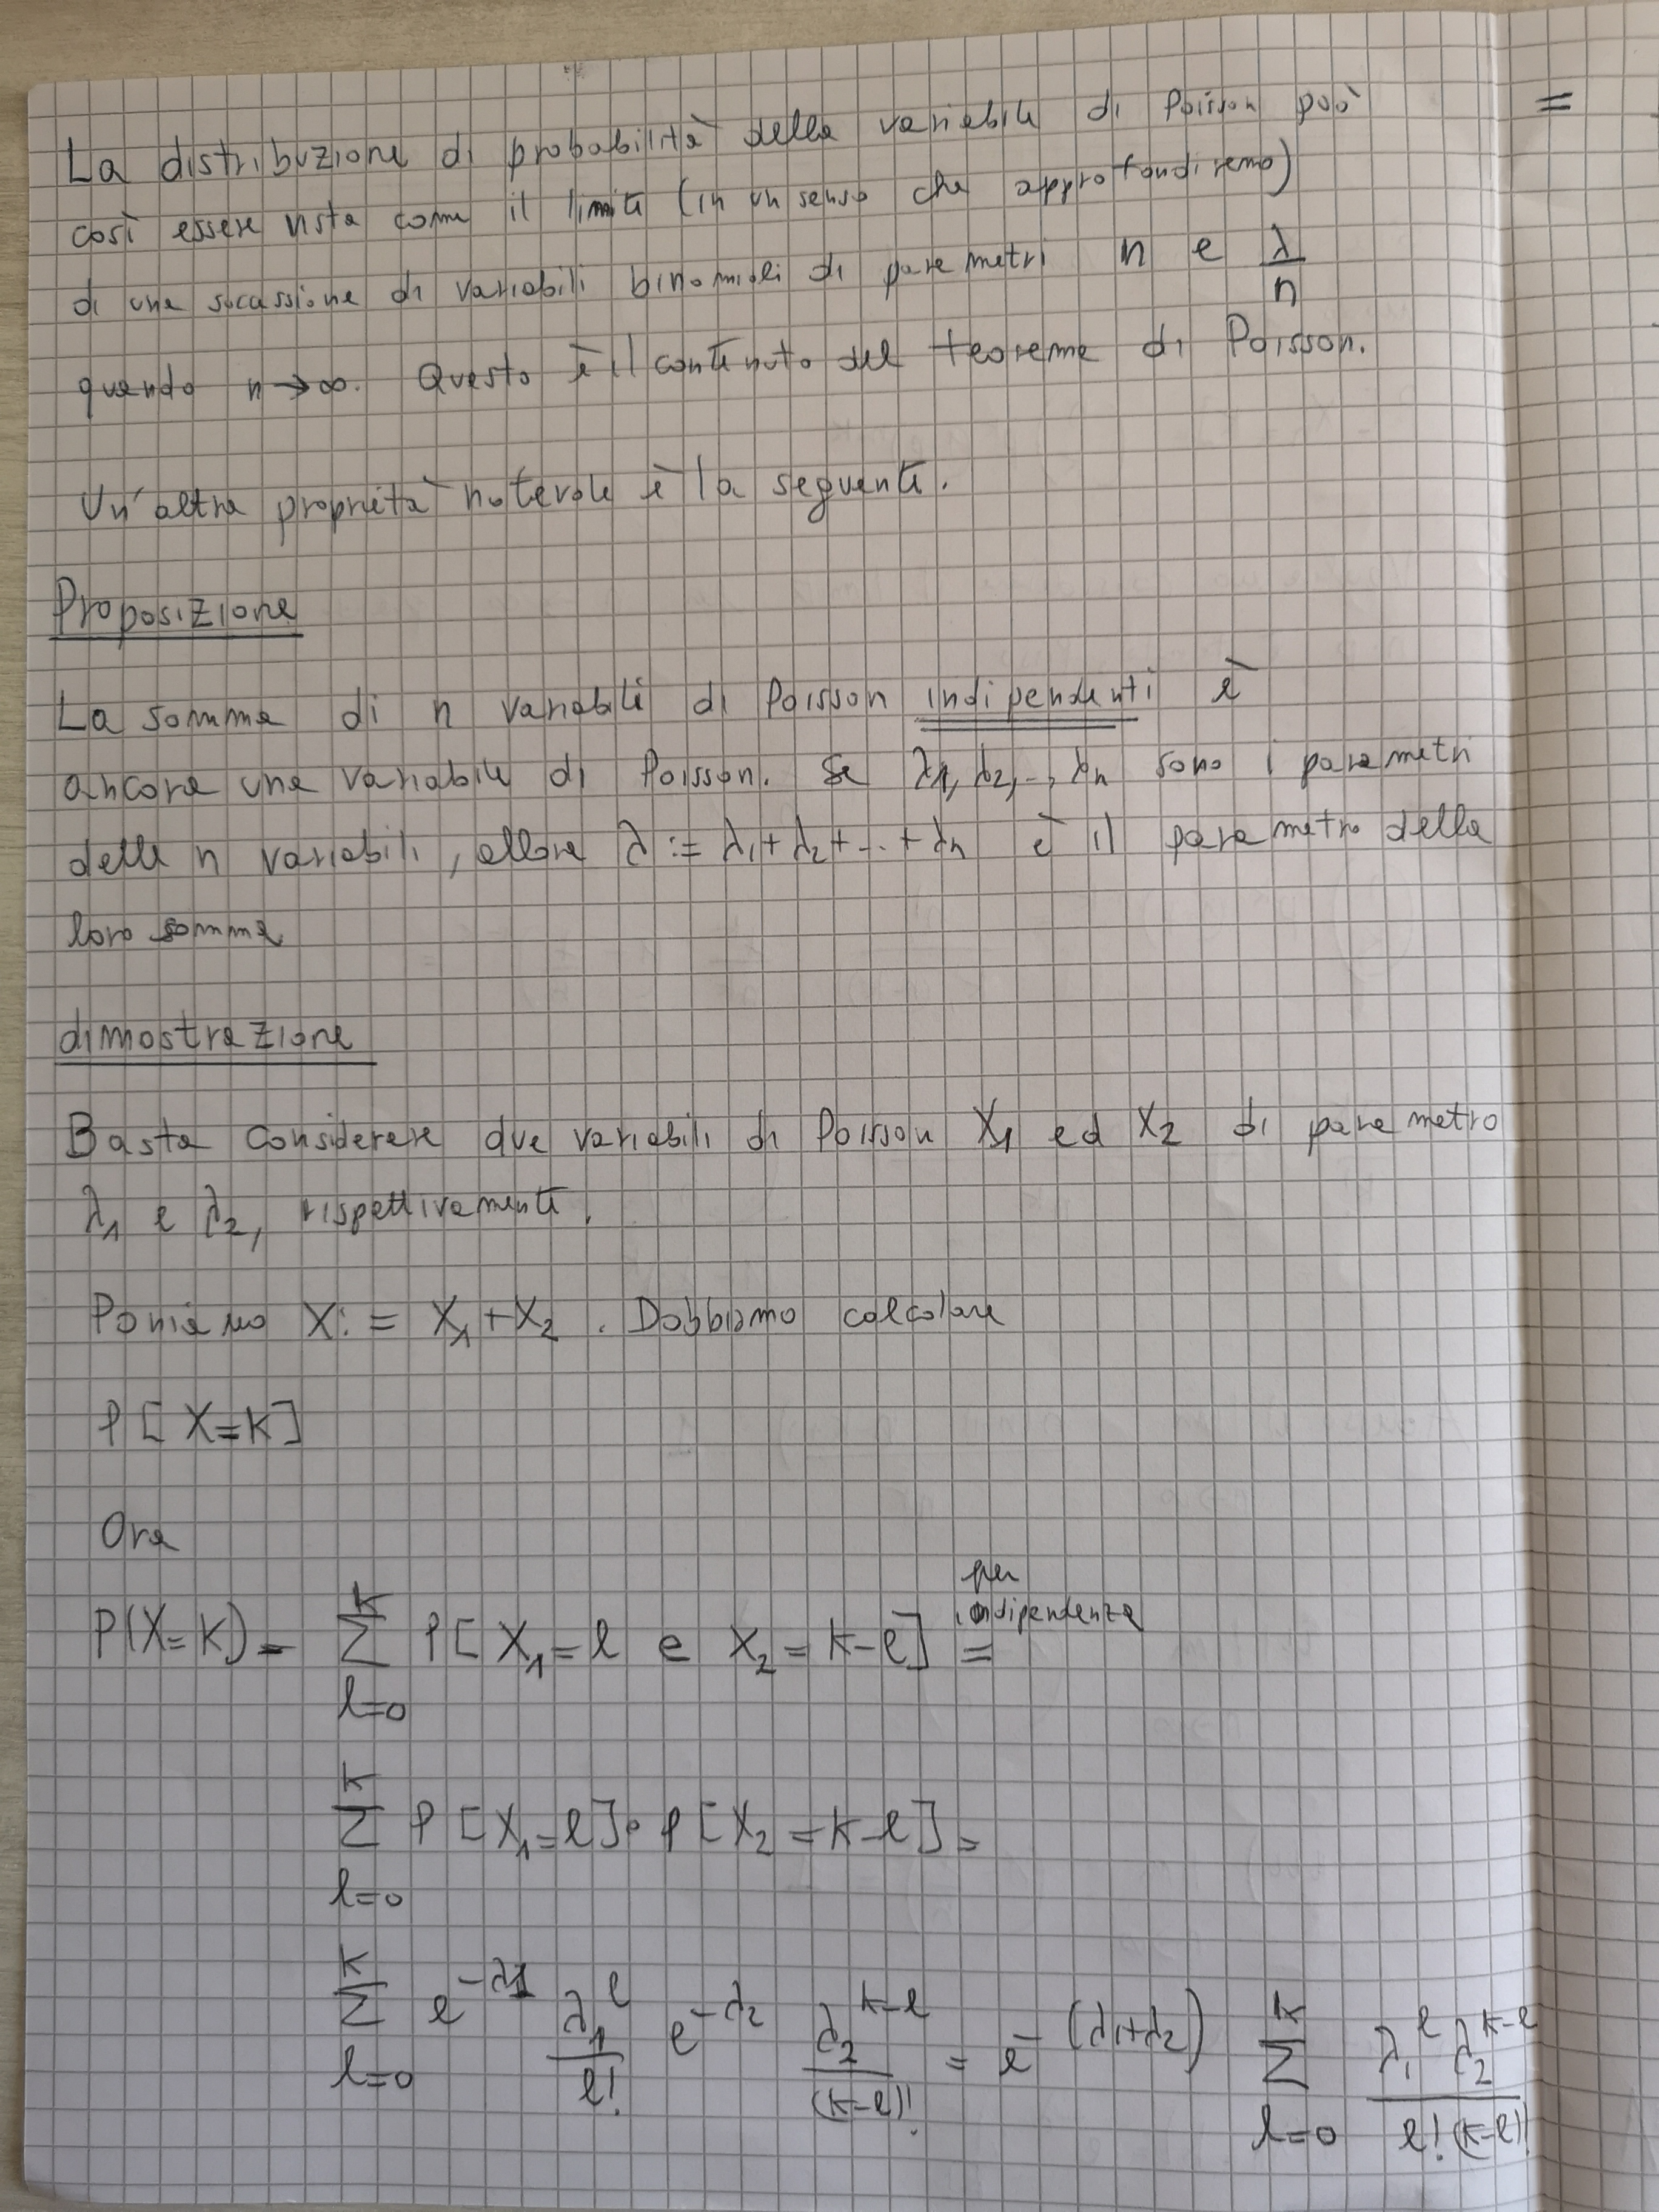 La distribuzione di probabilità della variabile di Poisson può
così essere vista come il limite (in un senso che approfondiremo)
di una successione di variabili binomiali di parametri n e λ/n
quando n→∞. Questo è il contenuto del teorema di Poisson.
Un'altra proprietà notevole è la seguente.
Proposizione
La somma di n variabili di Poisson indipendenti è
ancora una variabile di Poisson. Se λ1, λ2, .., λn sono i parametri
delle n variabili, allora λ := λ1 + λ2 + .. + λn è il parametro della
loro somma
dimostrazione
Basta considerare due variabili di Poisson X1 ed X2 di parametro
λ1 e λ2, rispettivamente.
Poniamo X := X1 + X2. Dobbiamo calcolare
P[X=K]
Ora
P(X=K) = ∑_{l=0}^{K} P[X1=l e X2=K-l] = per indipendenza
∑_{l=0}^{K} P[X1=l]·P[X2=K-l] =
∑_{l=0}^{K} e^{-λ1} λ1^l/l! e^{-λ2} λ2^{K-l}/(K-l)! = e^{-(λ1+λ2)} ∑_{l=0}^{K} λ1^l λ2^{K-l}/l!(K-l)!
=